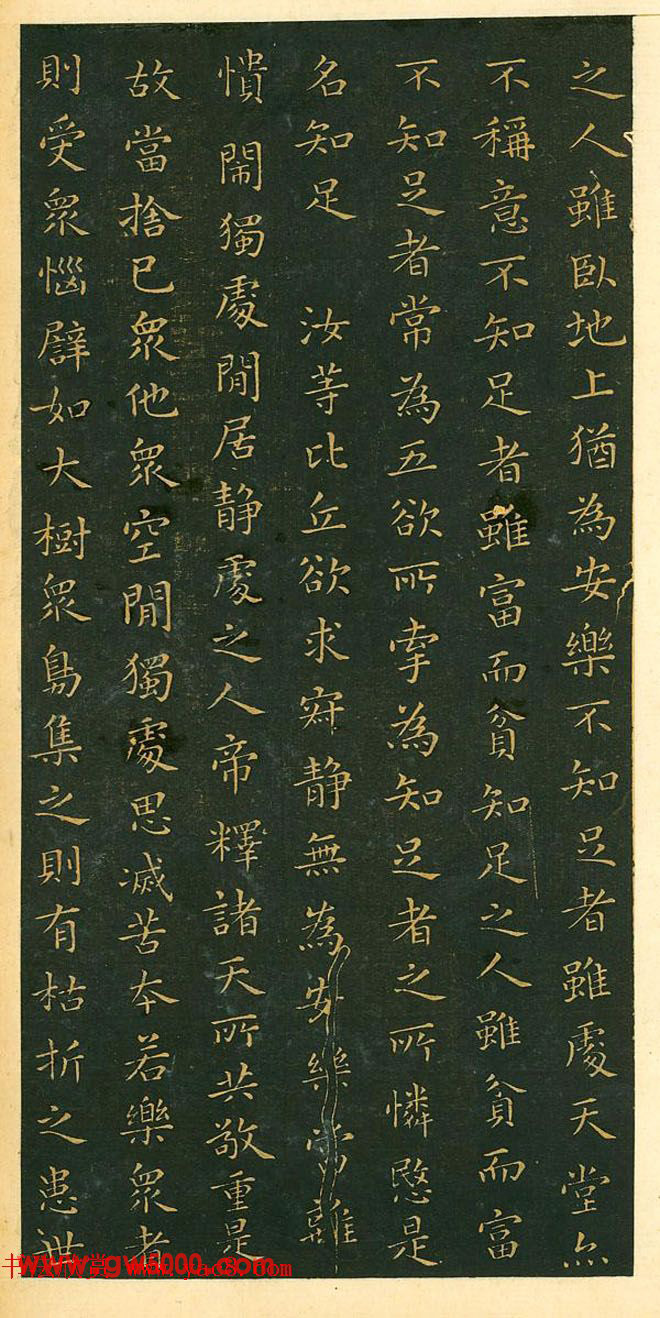 之人雖臥地上猶為安樂不知足者雖處天堂亦
不稱意不知足者雖富而貧知足之人雖貧而富
不知足者常為五欲所牽為知足者之所憐愍是
名知足 汝等比丘欲求寂靜無為安樂當離
憒閙獨處閒居静處之人帝釋諸天所共敬重是
故當捨已衆他衆空閒獨處思滅苦本若樂衆者
則受衆惱譬如大樹衆鳥集之則有枯折之患世